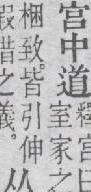 宮中道
釋宮曰
室家之
梱致。皆引伸
叚借之義。
从